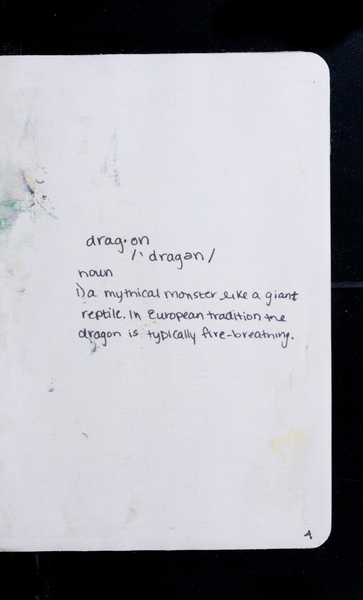 drag·on
/ˈdragən/
noun
1) a mythical monster like a giant
reptile. In European tradition the
dragon is typically fire-breathing.
4